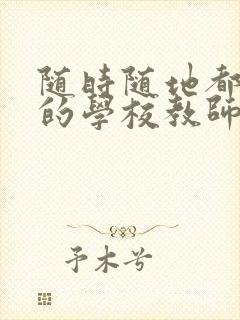 随時随地都
的學校教師
予木兮